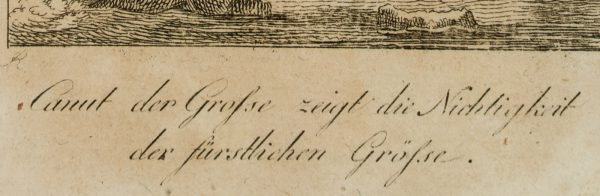 Canut der Große zeigt die Nichtigkeit
der fürstlichen Größe.